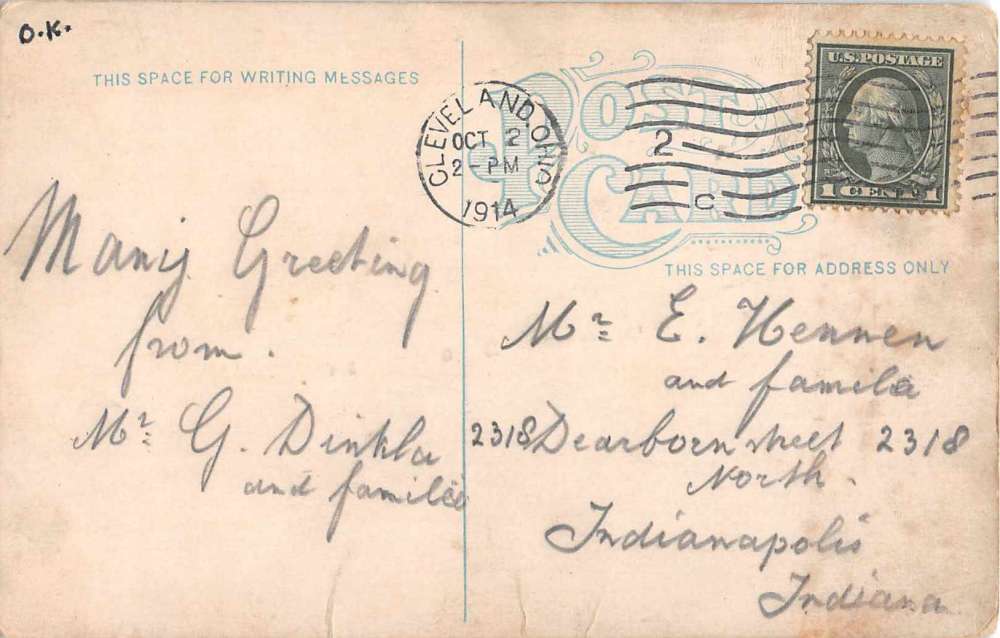 O.K.
THIS SPACE FOR WRITING MESSAGES
POST CARD
CLEVELAND, OHIO
OCT 2
2-PM
1914
2
C
U.S. POSTAGE
1 CENT 1
THIS SPACE FOR ADDRESS ONLY
Many Greeting
from.
Mr. G. Dinkla
and familie
Mr. E. Hennen
and familie
2318 Dearborn street 2318
North.
Indianapolis
Indiana